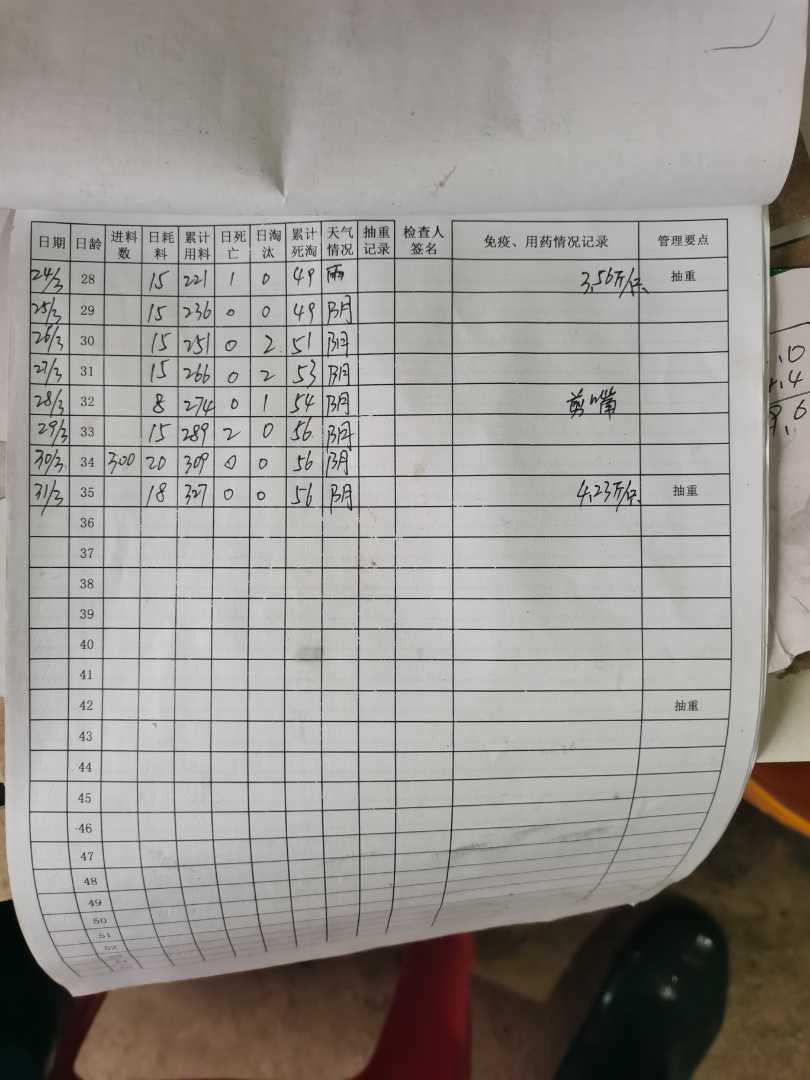 日期 日龄 进料数 日耗料 累计用料 日死亡 日淘汰 累计死淘 天气情况 抽重记录 检查人签名 免疫、用药情况记录 管理要点
24/3 28 15 221 1 0 49 雨 3.56斤/只 抽重
25/3 29 15 236 0 0 49 阴
26/3 30 15 251 0 2 51 阴
27/3 31 15 266 0 2 53 阴
28/3 32 8 274 0 1 54 阴 剪嘴
29/3 33 15 289 2 0 56 阴
30/3 34 300 20 309 0 0 56 阴
31/3 35 18 327 0 0 56 阴 4.23斤/只 抽重
36
37
38
39
40
41
42 抽重
43
44
45
46
47
48
49
50
51
52